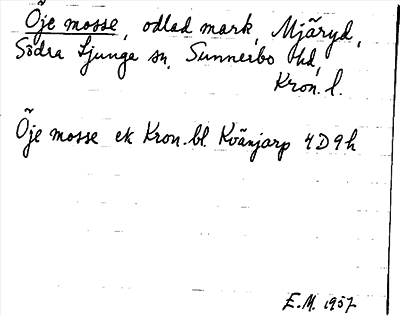 Öje mosse, odlad mark, Mjäryd,
Södra Ljunga sn, Sunnerbo hd,
Kron. l.
Öje mosse ek Kron. bl. Kvänjarp 4D9h
E.M. 1957